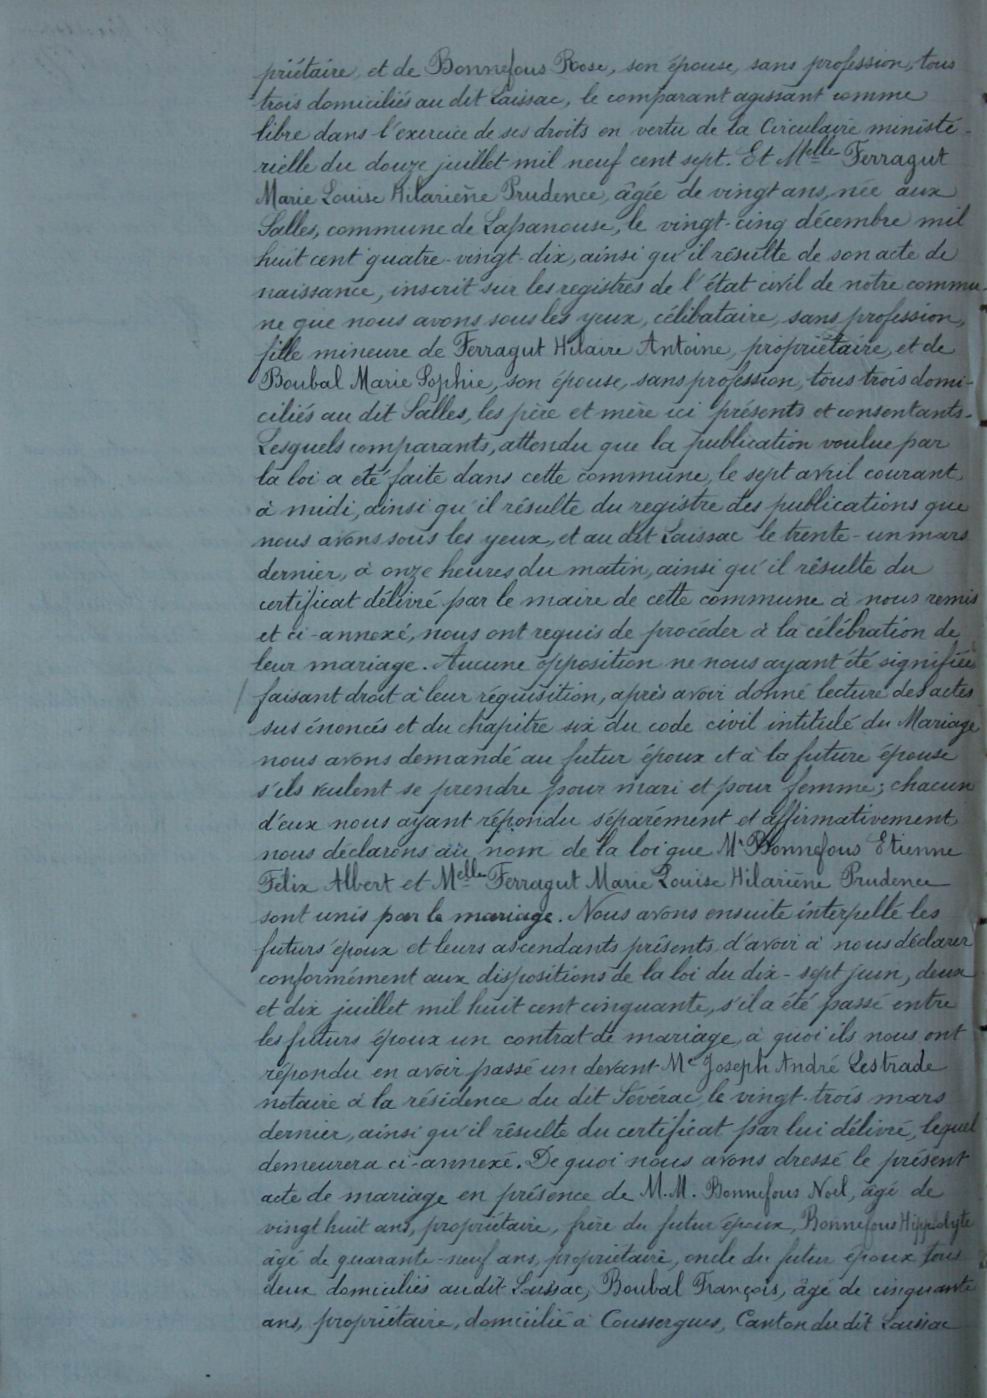 priétaire, et de Bonnefous Rose, son épouse, sans profession, tous
trois domiciliés au dit Laissac, le comparant agissant comme
libre dans l'exercice de ses droits en vertu de la Circulaire ministé-
rielle du douze juillet mil neuf cent sept. Et Melle Ferragut
Marie Louise Hilariène Prudence, âgée de vingt ans, née aux
Salles, commune de Lapanouse, le vingt-cinq décembre mil
huit cent quatre-vingt-dix, ainsi qu'il résulte de son acte de
naissance, inscrit sur les registres de l'état civil de notre commu-
ne que nous avons sous les yeux, célibataire, sans profession,
fille mineure de Ferragut Hilaire Antoine, propriétaire, et de
Boubal Marie Sophie, son épouse, sans profession, tous trois domi-
ciliés au dit Salles, les père et mère ici présents et consentants.
Lesquels comparants, attendu que la publication voulue par
la loi a été faite dans cette commune, le sept avril courant,
à midi, ainsi qu'il résulte du registre des publications que
nous avons sous les yeux, et au dit Laissac le trente-un mars
dernier, à onze heures du matin, ainsi qu'il résulte du
certificat délivré par le maire de cette commune à nous remis
et ci-annexé, nous ont requis de procéder à la célébration de
leur mariage. Aucune opposition ne nous ayant été signifiée
faisant droit à leur réquisition, après avoir donné lecture des actes
sus énoncés et du chapitre six du code civil intitulé du Mariage
nous avons demandé au futur époux et à la future épouse
s'ils veulent se prendre pour mari et pour femme; chacun
d'eux nous ayant répondu séparément et affirmativement
nous déclarons au nom de la loi que Mr Bonnefous Etienne
Félix Albert et Melle Ferragut Marie Louise Hilariène Prudence
sont unis par le mariage. Nous avons ensuite interpellé les
futurs époux et leurs ascendants présents d'avoir à nous déclarer
conformément aux dispositions de la loi du dix-sept juin, deux
et dix juillet mil huit cent cinquante, s'il a été passé entre
les futurs époux un contrat de mariage, à quoi ils nous ont
répondu en avoir passé un devant Me Joseph André Lestrade
notaire à la résidence du dit Sévérac, le vingt-trois mars
dernier, ainsi qu'il résulte du certificat par lui délivré, lequel
demeurera ci-annexé. De quoi nous avons dressé le présent
acte de mariage en présence de M.M. Bonnefous Noel, âgé de
vingt huit ans, propriétaire, frère du futur époux, Bonnefous Hippolyte
âgé de quarante-neuf ans, propriétaire, oncle du futur époux tous
deux domiciliés au dit Laissac, Boubal François, âgé de cinquante
ans, propriétaire, domicilié à Coussergues, Canton du dit Laissac